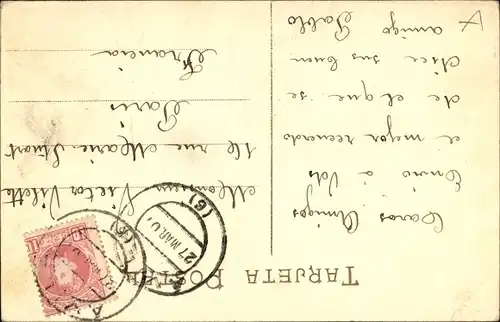 TARJETA POSTAL
Caros Amigos
Envio á Vds
el mejor recuerdo
de el que se
dice su buen
amigo Pablo
Monsieur Victor Vilette
16 rue Marie Stuart
Paris
Francia
27 MAR 07
(6)